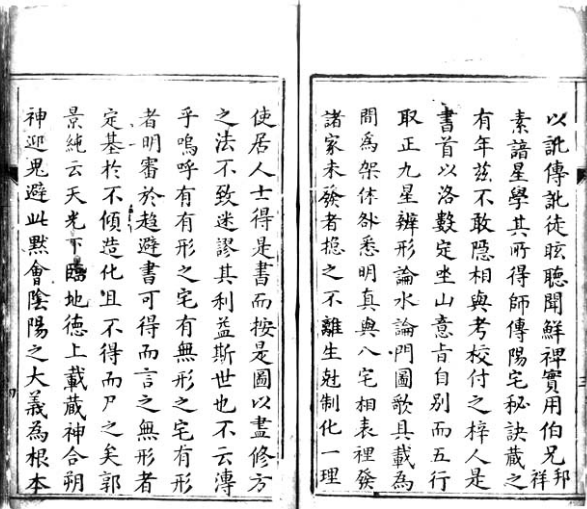 以訛傳訛徒眩聽聞鮮裨實用伯兄邦祥
素諳星學其所得師傳陽宅秘訣藏之
有年茲不敢隱相與考校付之梓人是
書首以洛數定坐山意旨自別而五行
取正九星辨形論水論門圖歌具載為
間為架休咎悉明真與八宅相表裡發
諸家未發者揔之不離生尅制化一理
使居人士得是書而按是圖以盡修方
之法不致迷謬其利益斯世也不云溥
乎嗚呼有有形之宅有無形之宅有形
者明審於趨避書可得而言之無形者
定基於不傾造化且不得而尸之矣郭
景純云天光下臨地德上載蔵神合朔
神迎鬼避此黙會陰陽之大義為根本